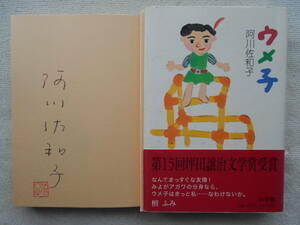 阿川佐和子
ウメ子
阿川佐和子
第15回坪田譲治文学賞受賞
なんてまっすぐな友情!
みよがアガワの分身なら、
ウメ子はきっと私……なわけないか。
檀 ふみ
小学館